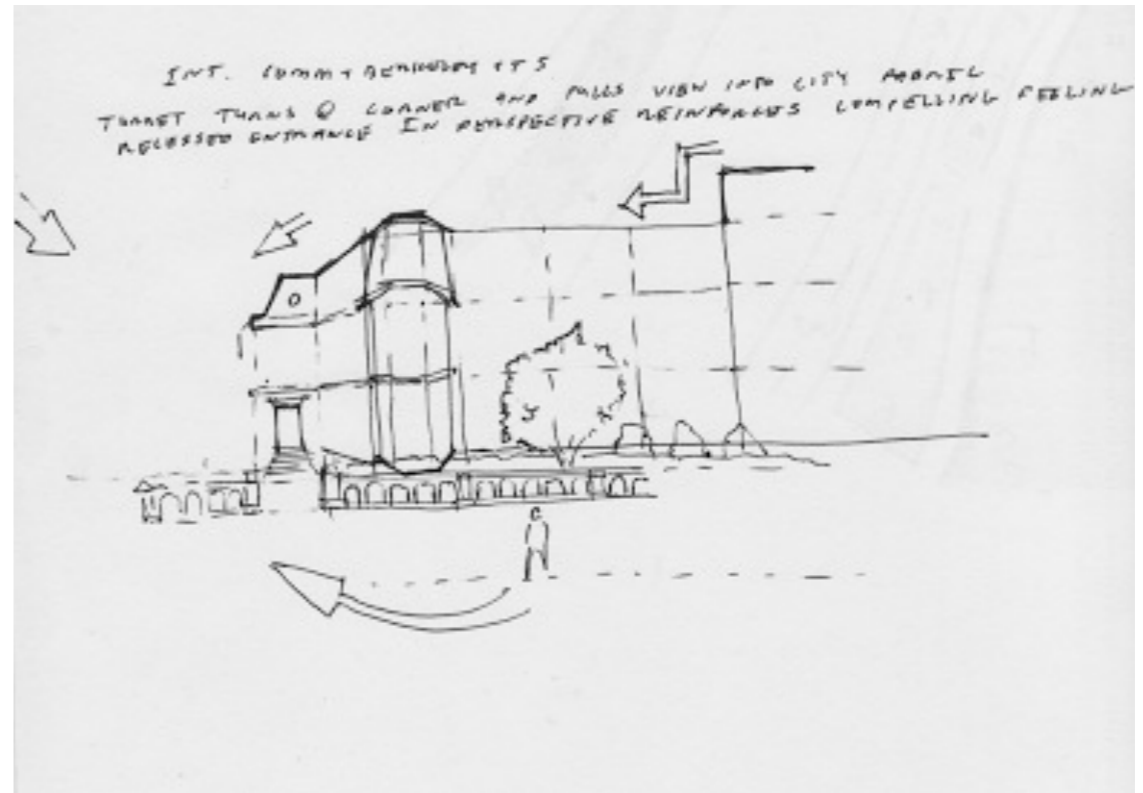 INT. COMM + BERKELEY STS
TURRET TURNS @ CORNER AND PULLS VIEW INTO CITY FABRIC
RECESSED ENTRANCE IN PERSPECTIVE REINFORCES COMPELLING FEELING